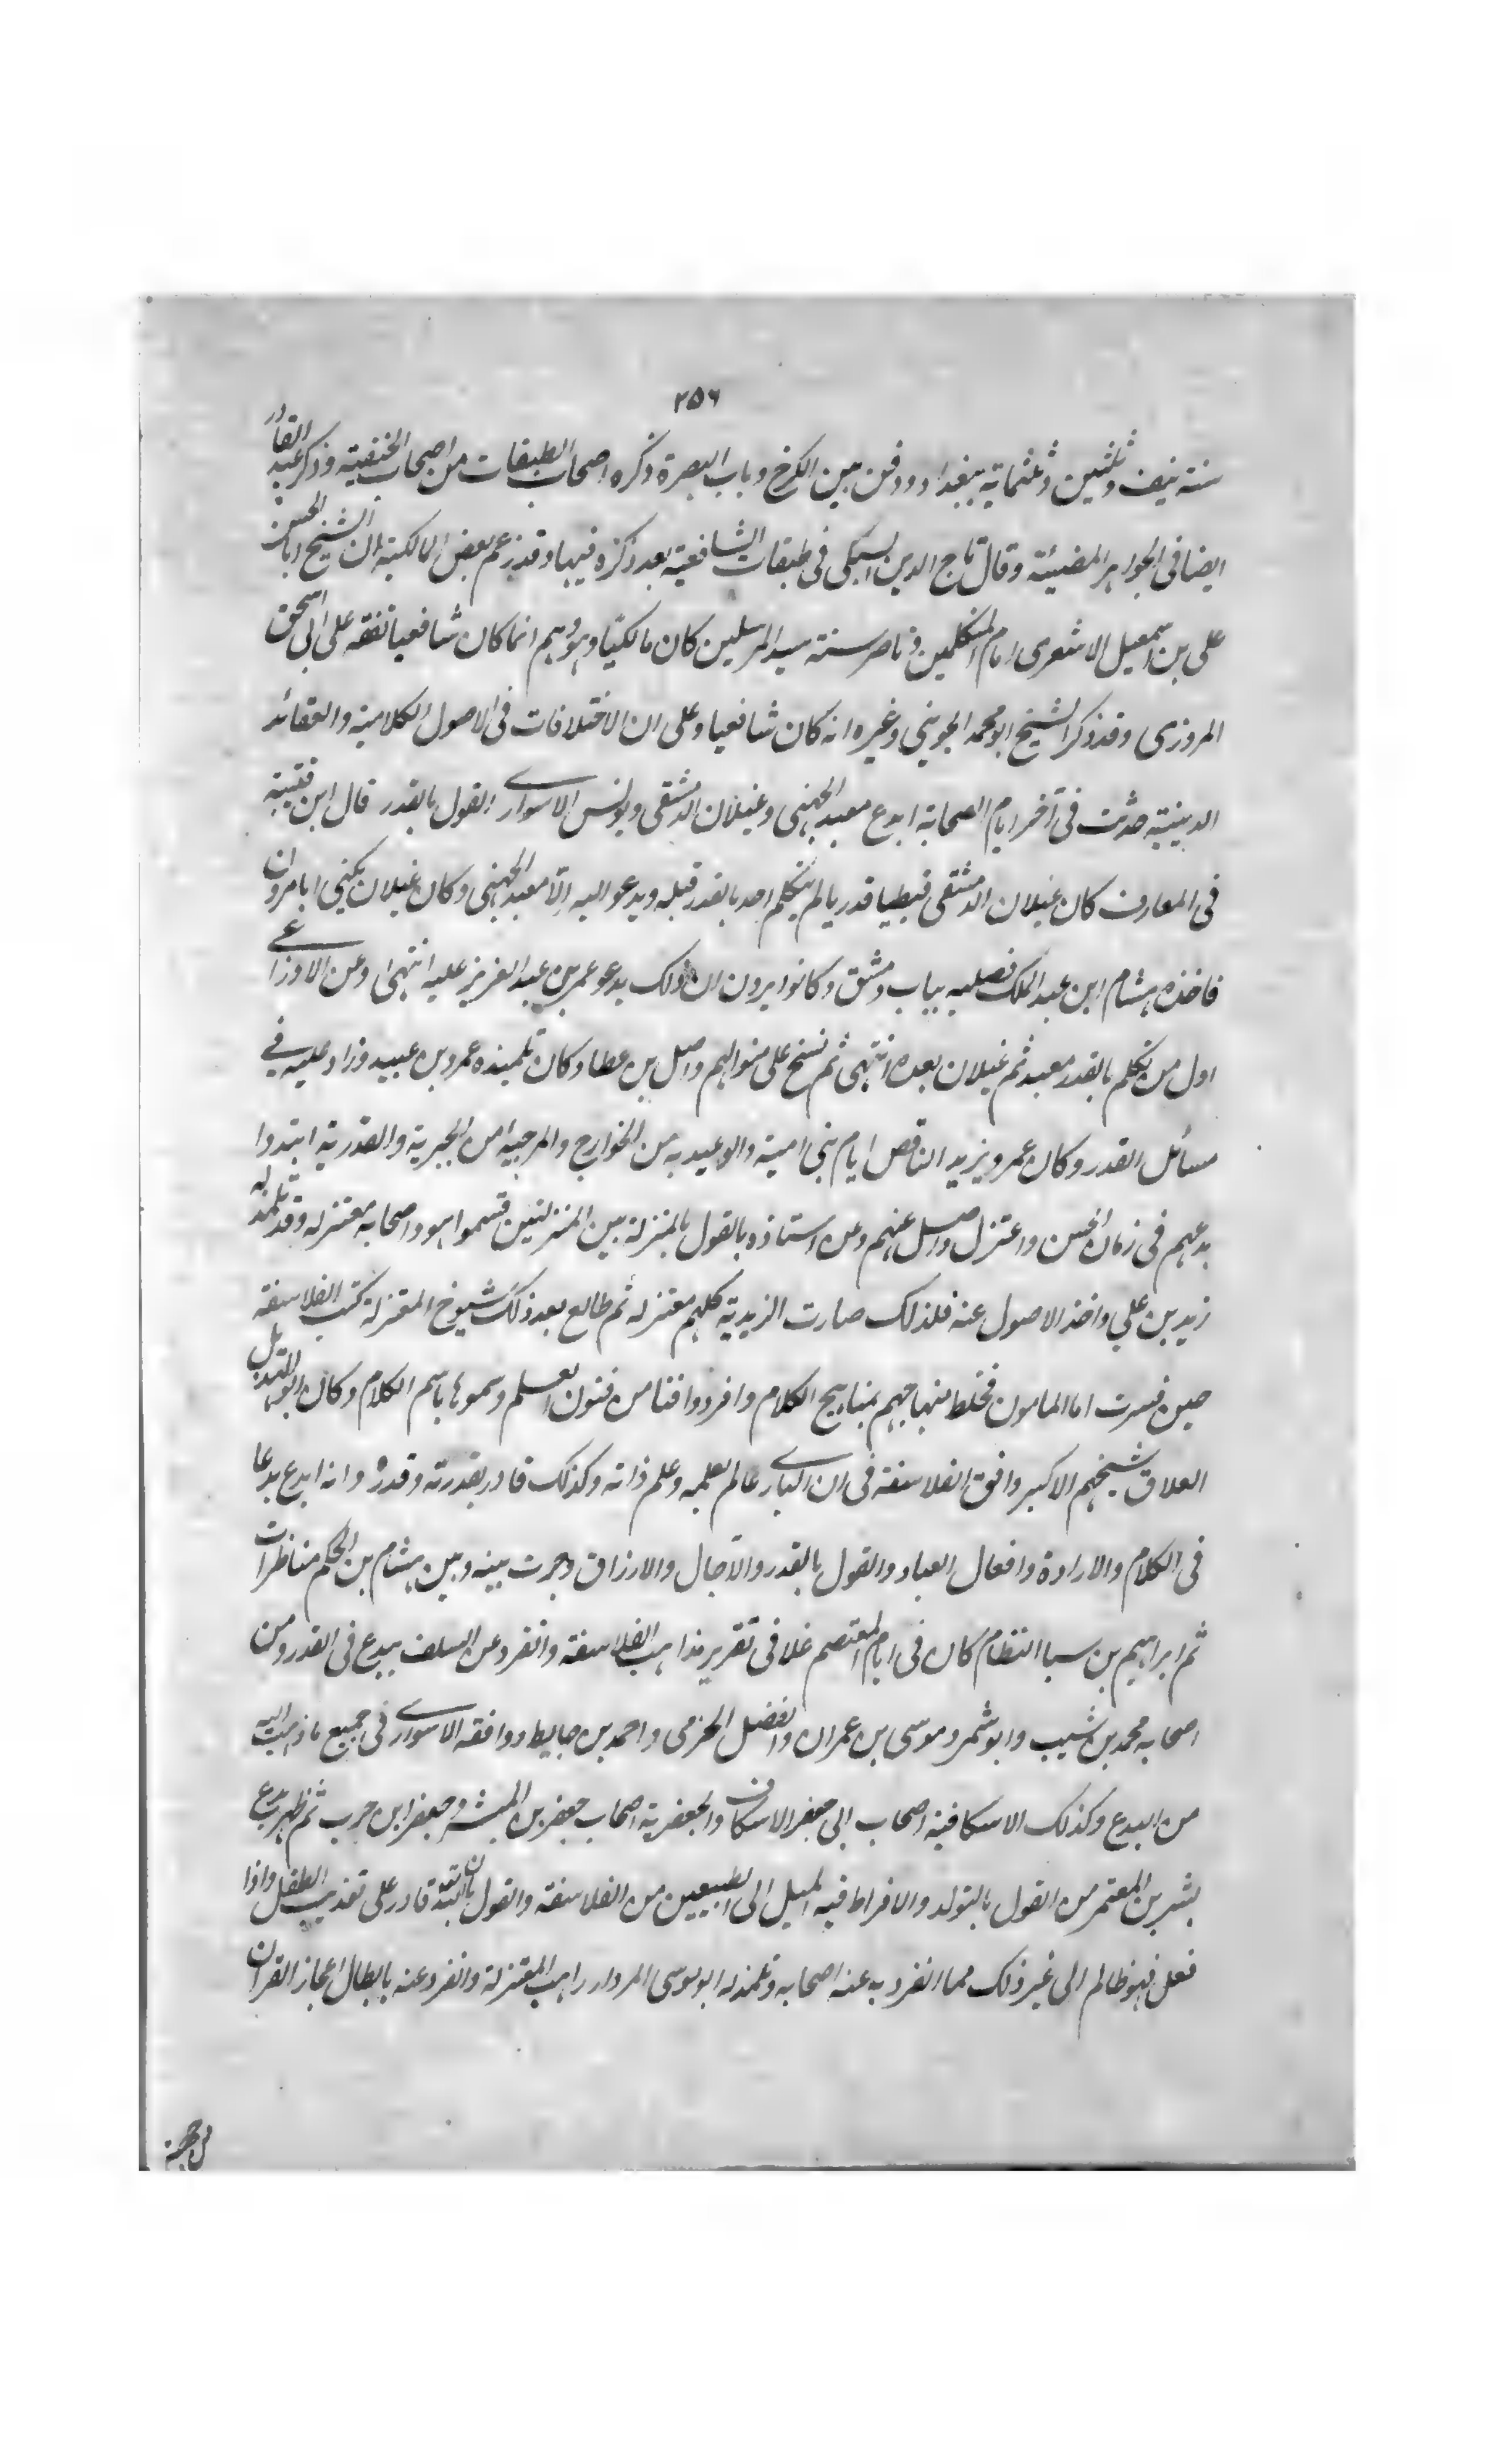 ٢٥٦
سنة نيف وثلثين وثلثماية ببغداد ودفن بين الكرخ وباب البصرة ذكره اصحاب الطبقات من اصحاب الحنفية وذكر عبد القادر
ايضا فى الجواهر المضيئة وقال تاج الدين السبكى فى طبقات الشافعية بعد ذكره فيها وقد زعم بعض المالكية ان الشيخ ابا الحسن
على بن اسمعيل الاشعرى امام المتكلمين وناصر سنة سيد المرسلين كان مالكيا وهو وهم انما كان شافعيا تفقه على ابى اسحق
المروزى وقد ذكر الشيخ ابو محمد الجوينى وغيره انه كان شافعيا وعلى ان الاختلافات فى الاصول الكلامية والعقائد
الدينية حدثت فى آخر ايام الصحابة ابدع معبد الجهنى وغيلان الدمشقى ويونس الاسوارى القول بالقدر قال ابن قتيبة
فى المعارف كان غيلان الدمشقى قبطيا قدريا لم يتكلم احد بالقدر قبله ويدعو اليه الّا معبد الجهنى وكان غيلان يكنى ابا مروان
فاخذه هشام ابن عبد الملك فصلبه بباب دمشق وكانوا يرون ان ذلك بدعو عمر بن عبد العزيز عليه انتهى وعن الاوزاعى
اول من تكلم بالقدر معبد ثم غيلان بعده انتهى ثم نسخ على منوالهم واصل بن عطا وكان تلميذه عمرو بن عبيد وزاد عليه فى
مسائل القدر وكان عمرو يزيد الناقص ايام بنى امية والوعيديه من الخوارج والمرجية من الجبرية والقدرية ابتدوا
بدعهم فى زمان الحسن واعتزل واصل عنهم وعن استاذه بالقول بالمنزلة بين المنزلتين فسموا هو واصحابه معتزله وقد تلمذ له
زيد بن على واخذ الاصول عنه فلذلك صارت الزيدية كلهم معتزله ثم طالع بعد ذلك شيوخ المعتزلة كتب الفلاسفة
حين فسرت اما المامون فخلط منهاجهم بمناهج الكلام وافردوا فنا من فنون العلم وسموها باسم الكلام وكان ابو الهذيل
العلاق شيخهم الاكبر وافق الفلاسفة فى ان البارى عالم بعلمه وعلم ذاته وكذلك قادر بقدرته وقدرة وانه ابدع بدعا
فى الكلام والارادة وافعال العباد والقول بالقدر والآجال والارزاق وجرت بينه وبين هشام بن الحكم مناظرات
ثم ابراهيم بن سبا النظام كان فى ايام المعتصم غلا فى تقرير مذاهب الفلاسفة وانفرد عن السلف ببدع فى القدر ومن
اصحابه محمد بن شبيب وابو شمر وموسى بن عمران والفضل الحزمى واحمد بن حابيط ووافقه الاسوارى فى جميع ما ذهبت اليه
من البدع وكذلك الاسكافية اصحاب ابى جعفر الاسكاف والجعفرية اصحاب جعفر بن المبشر وجعفر ابن حرب ثم ظهر بدع
بشر بن المعتمر من القول بالتولد والافراط فيه الميل الى الطبيعيين من الفلاسفة والقول بان الله قادر على تعذيب الطفل واذا
فعل فهو ظالم الى غير ذلك مما انفرد به عنه اصحابه وتلمذ له ابو موسى المردار راهب المعتزلة وانفرد عنه بابطال اعجاز القران
من جهة